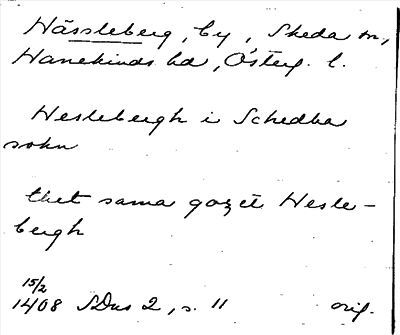 Hässleberg, by, Skeda sn,
Hanekinds hd, Österg. l.
Heslebergh i Schedha
sokn
thet sama gozet Hesle-
bergh
15/2
1408 SDns 2, s. 11 orig.